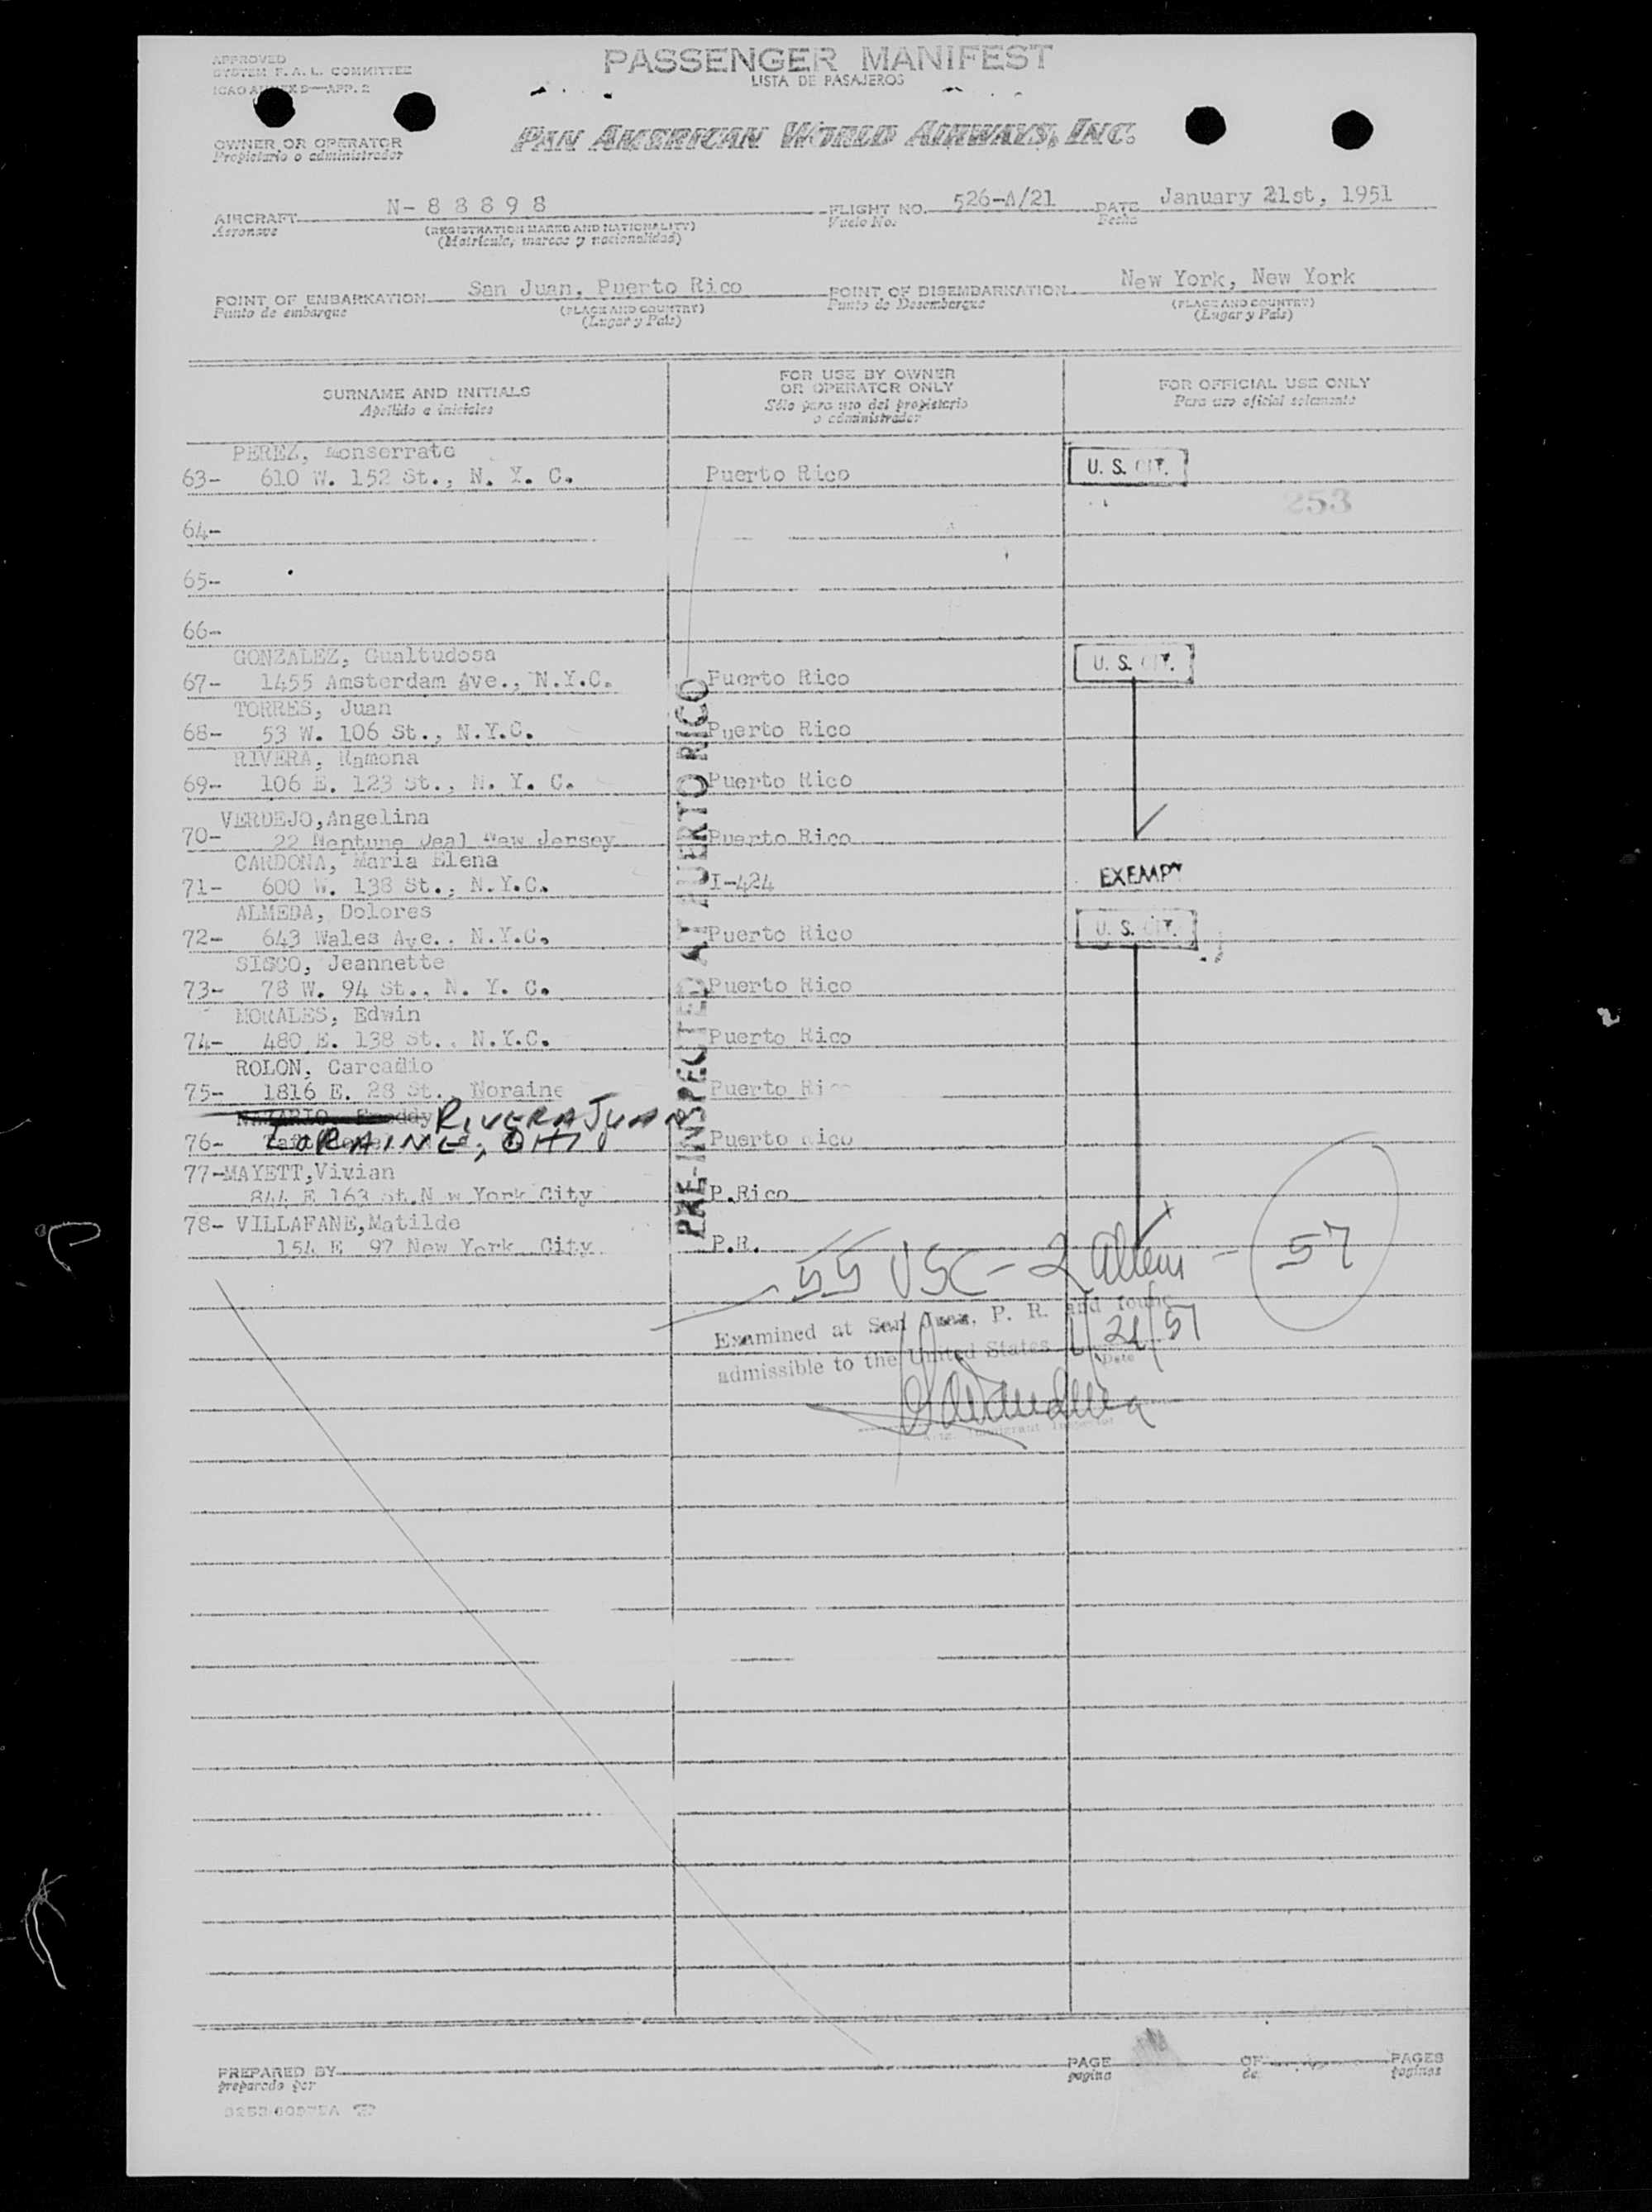 APPROVED
SYSTEM F.A.L. COMMITTEE
ICAO ANNEX 9—APP. 2
PASSENGER MANIFEST
LISTA DE PASAJEROS
OWNER OR OPERATOR
Propietario o administrador
PAN AMERICAN WORLD AIRWAYS, INC.
AIRCRAFT N-88898 FLIGHT NO. 526-A/21 DATE January 21st, 1951
Aeronave (REGISTRATION MARKS AND NATIONALITY) Vuelo No. Fecha
(Matrícula, marcas y nacionalidad)
POINT OF EMBARKATION San Juan, Puerto Rico POINT OF DISEMBARKATION New York, New York
Punto de embarque (PLACE AND COUNTRY) Punto de Desembarque (PLACE AND COUNTRY)
(Lugar y País) (Lugar y País)
SURNAME AND INITIALS FOR USE BY OWNER OR OPERATOR ONLY FOR OFFICIAL USE ONLY
Apellido e iniciales Sólo para uso del propietario o administrador Para uso oficial solamente
PEREZ, Monserrate
63- 610 W. 152 St., N. Y. C. Puerto Rico U. S. CIT.
253
64-
65-
66-
GONZALEZ, Gualtudosa
67- 1455 Amsterdam Ave., N.Y.C. Puerto Rico U. S. CIT.
TORRES, Juan
68- 53 W. 106 St., N.Y.C. Puerto Rico
RIVERA, Ramona
69- 106 E. 123 St., N. Y. C. Puerto Rico
VERDEJO,Angelina
70- 22 Neptune Deal New Jersey Puerto Rico
CARDONA, Maria Elena
71- 600 W. 138 St., N.Y.C. I-424 EXEMPT
ALMEDA, Dolores
72- 643 Wales Ave., N.Y.C. Puerto Rico U. S. CIT.
SISCO, Jeannette
73- 78 W. 94 St., N. Y. C. Puerto Rico
MORALES, Edwin
74- 480 E. 138 St., N.Y.C. Puerto Rico
ROLON, Carcadio
75- 1816 E. 28 St., Noraine Puerto Rico
NAZARIO, Freddy RIVERA JUAN
76- LORAINE, OHI Puerto Rico
77-MAYETT,Vivian
844 E 163 St.New York City P.Rico
78- VILLAFANE,Matilde
154 E 97 New York City P.R.
PRE-INSPECTED AT PUERTO RICO
55 USC - 2 Aliens - 57
Examined at San Juan, P. R. and found
admissible to the United States 1/21/51
Date
Immigrant Inspector
PREPARED BY PAGE OF PAGES
preparado por pagina de paginas